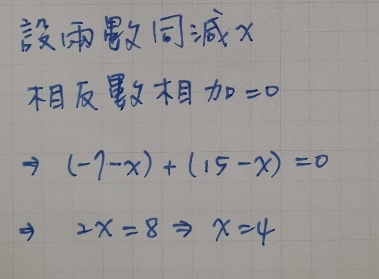 設兩數同減x
相反數相加=0
⇒ (-7-x)+(15-x)=0
⇒ 2x=8⇒ x=4